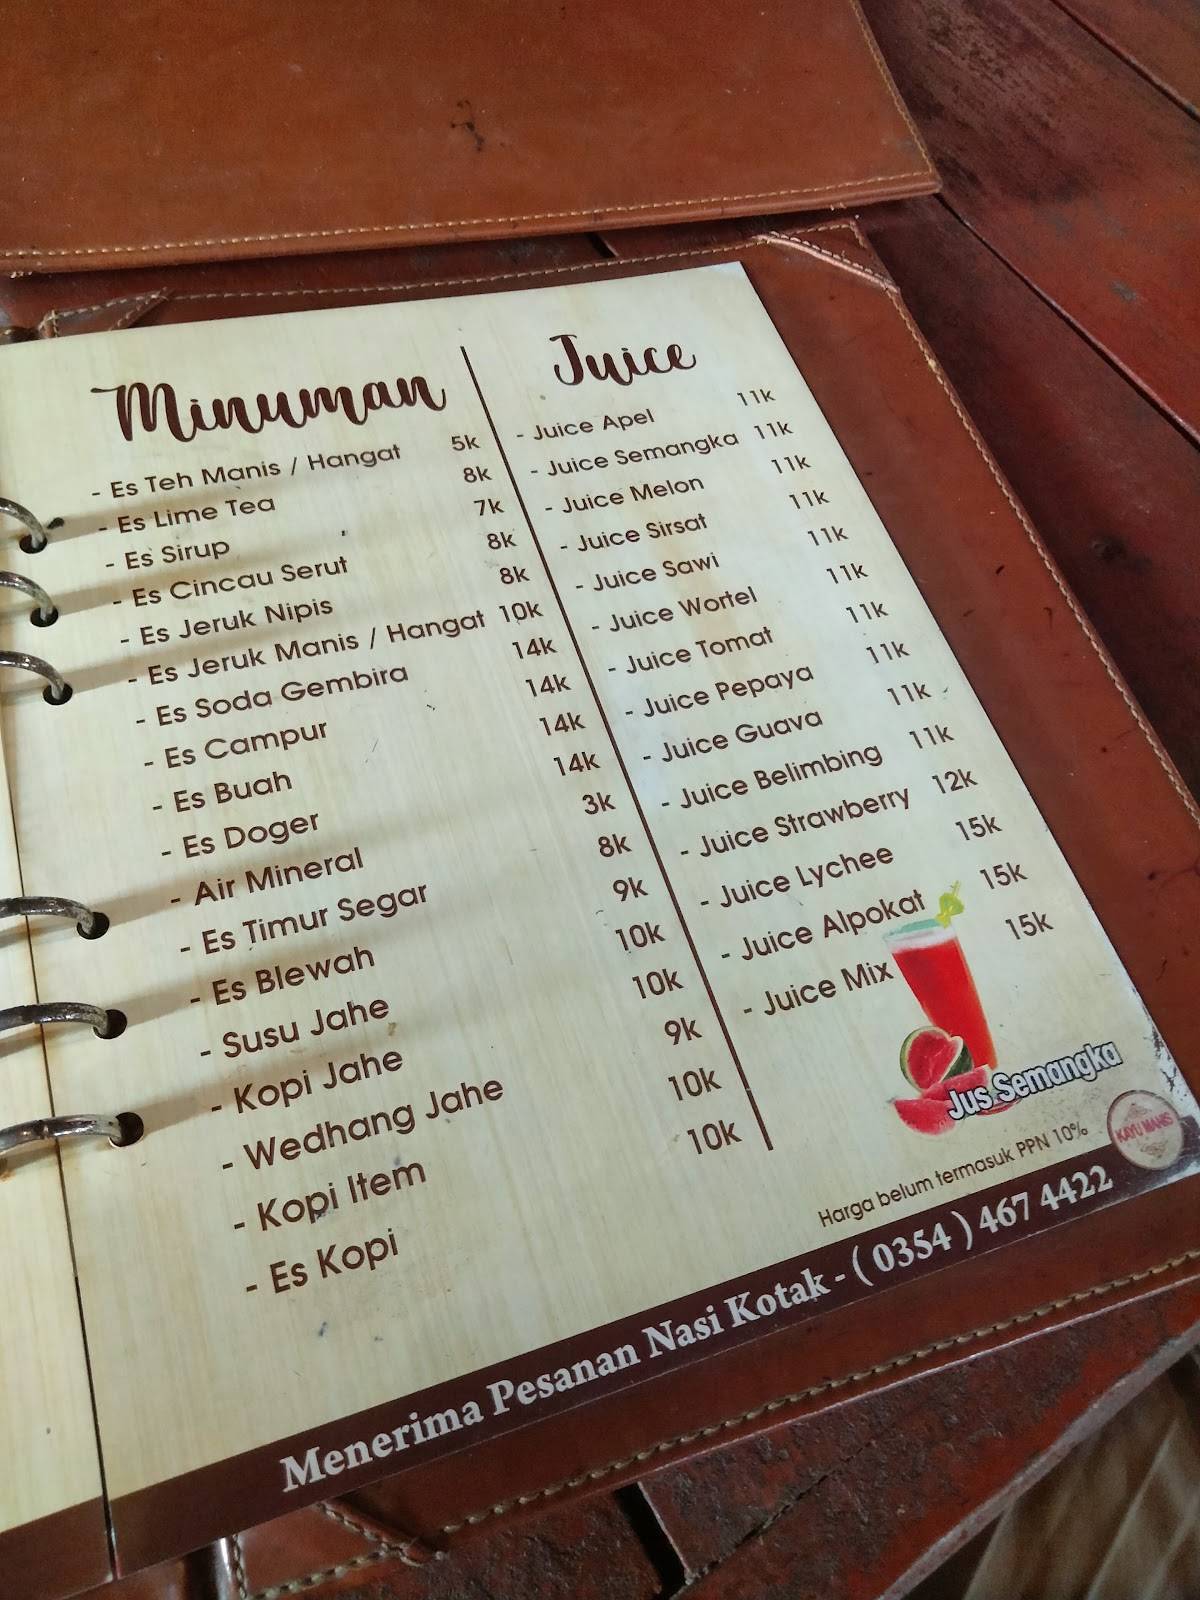 Minuman
- Es Teh Manis / Hangat 5k
- Es Lime Tea 8k
- Es Sirup 7k
- Es Cincau Serut 8k
- Es Jeruk Nipis 8k
- Es Jeruk Manis / Hangat 10k
- Es Soda Gembira 14k
- Es Campur 14k
- Es Buah 14k
- Es Doger 14k
- Air Mineral 3k
- Es Timur Segar 8k
- Es Blewah 9k
- Susu Jahe 10k
- Kopi Jahe 10k
- Wedhang Jahe 9k
- Kopi Item 10k
- Es Kopi 10k
Juice
- Juice Apel 11k
- Juice Semangka 11k
- Juice Melon 11k
- Juice Sirsat 11k
- Juice Sawi 11k
- Juice Wortel 11k
- Juice Tomat 11k
- Juice Pepaya 11k
- Juice Guava 11k
- Juice Belimbing 11k
- Juice Strawberry 12k
- Juice Lychee 15k
- Juice Alpokat 15k
- Juice Mix 15k
Jus Semangka
KAYU MANIS
Harga belum termasuk PPN 10%
Menerima Pesanan Nasi Kotak - ( 0354 ) 467 4422